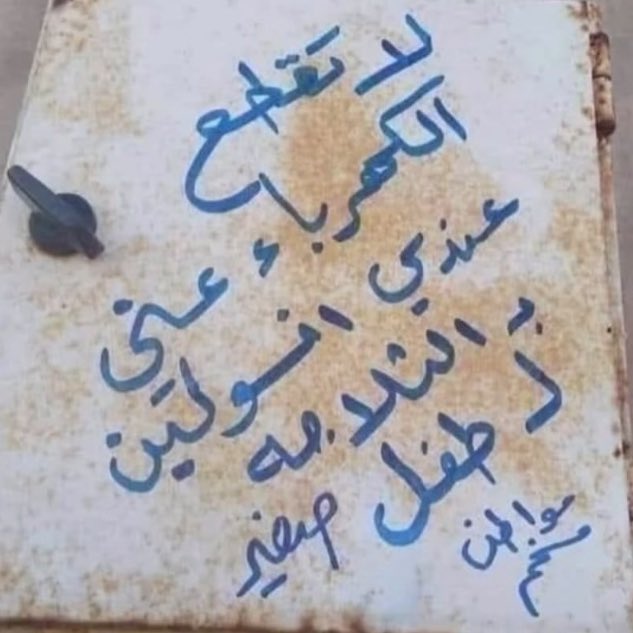 لا تقطع
الكهرباء عني
عندي انسولين
التلاجه
ل طفل صغير
مواطن